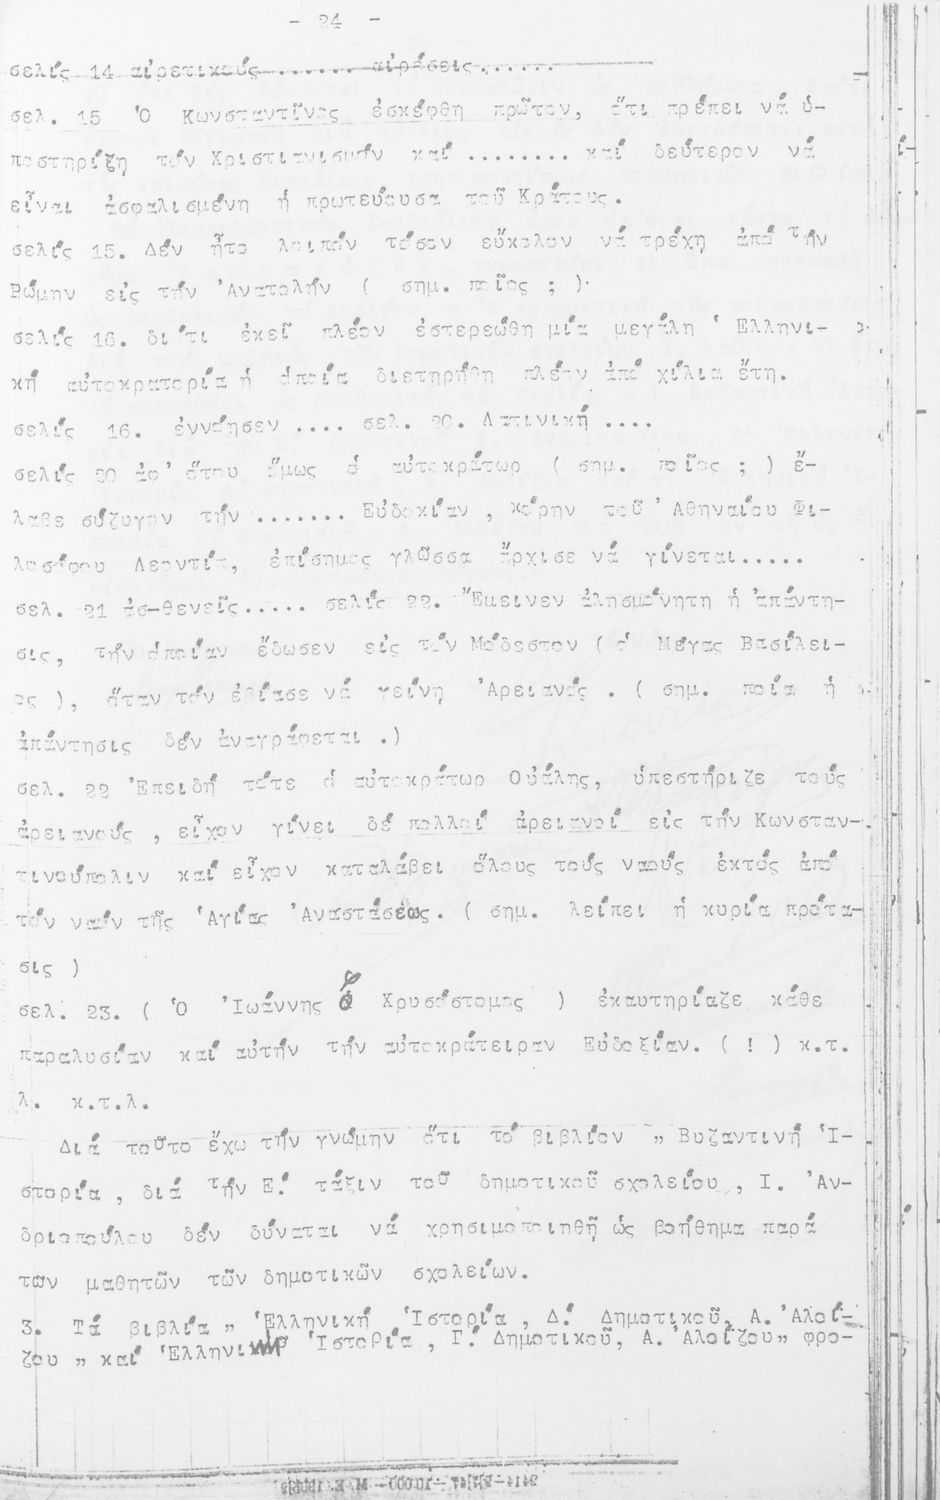 - 24 -
σελίς 14 αἱρετικούς...... αἱρέσεις......
σελ. 15 Ὁ Κωνσταντῖνος ἐσκέφθη πρῶτον, ὅτι πρέπει νά ὑ-
ποστηρίξη τόν Χριστιανισμόν καί ........ καί δεύτερον νά
εἶναι ἀσφαλισμένη ἡ πρωτεύουσα τοῦ Κράτους.
σελίς 15. Δέν ἦτο λοιπόν τόσον εὔκολον νά τρέχη ἀπό τήν
Ρώμην εἰς τήν Ἀνατολήν ( σημ. ποῖος ; ).
σελίς 16. διότι ἐκεῖ πλέον ἐστερεώθη μία μεγάλη Ἑλληνι-
κή αὐτοκρατορία ἡ ὁποία διετηρήθη πλέον ἀπό χίλια ἔτη.
σελίς 16. ἐννόησεν .... σελ. 20. Λατινική ....
σελίς 20 ἀφ' ὅτου ὅμως ὁ αὐτοκράτωρ ( σημ. ποῖος ; ) ἔ-
λαβε σύζυγον τήν ....... Εὐδοκίαν , κόρην τοῦ Ἀθηναίου Φι-
λοσόφου Λεοντία, ἐπίσημος γλῶσσα ἄρχισε νά γίνεται.....
σελ. 21 ἀσ-θενεῖς..... σελίς 22. Ἔμεινεν ἀλησμόνητη ἡ ἀπάντη-
σις, τήν ὁποίαν ἔδωσεν εἰς τόν Μόδεστον ( ὁ Μέγας Βασίλει-
ος ), ὅταν τόν ἐβίασε νά γείνη Ἀρειανός . ( σημ. ποία ἡ
ἀπάντησις δέν ἀναγράφεται .)
σελ. 22 Ἐπειδή τότε ὁ αὐτοκράτωρ Οὐάλης, ὑπεστήριζε τούς
ἀρειανούς , εἶχον γίνει δέ πολλοί ἀρειανοί εἰς τήν Κωνσταν-
τινούπολιν καί εἶχον καταλάβει ὅλους τούς ναούς ἐκτός ἀπό
τόν ναόν τῆς Ἁγίας Ἀναστάσεως. ( σημ. λείπει ἡ κυρία πρότα-
σις )
σελ. 23. ( Ὁ Ἰωάννης ὁ Χρυσόστομος ) ἐκαυτηρίαζε κάθε
παραλυσίαν καί αὐτήν τήν αὐτοκράτειραν Εὐδοξίαν. ( ! ) κ.τ.
λ. κ.τ.λ.
Διά τοῦτο ἔχω τήν γνώμην ὅτι τό βιβλίον „ Βυζαντινή Ἱ-
στορία , διά τήν Ε.' τάξιν τοῦ δημοτικοῦ σχολείου „ Ι. Ἀν-
δριοπούλου δέν δύναται νά χρησιμοποιηθῆ ὡς βοήθημα παρά
των μαθητῶν τῶν δημοτικῶν σχολείων.
3. Τά βιβλία „ Ἑλληνική Ἱστορία , Δ.' Δημοτικοῦ, Α. Ἀλοΐ-
ζου „ καί Ἑλληνική Ἱστορία , Γ.' Δημοτικοῦ, Α. Ἀλοΐζου „ φρο-